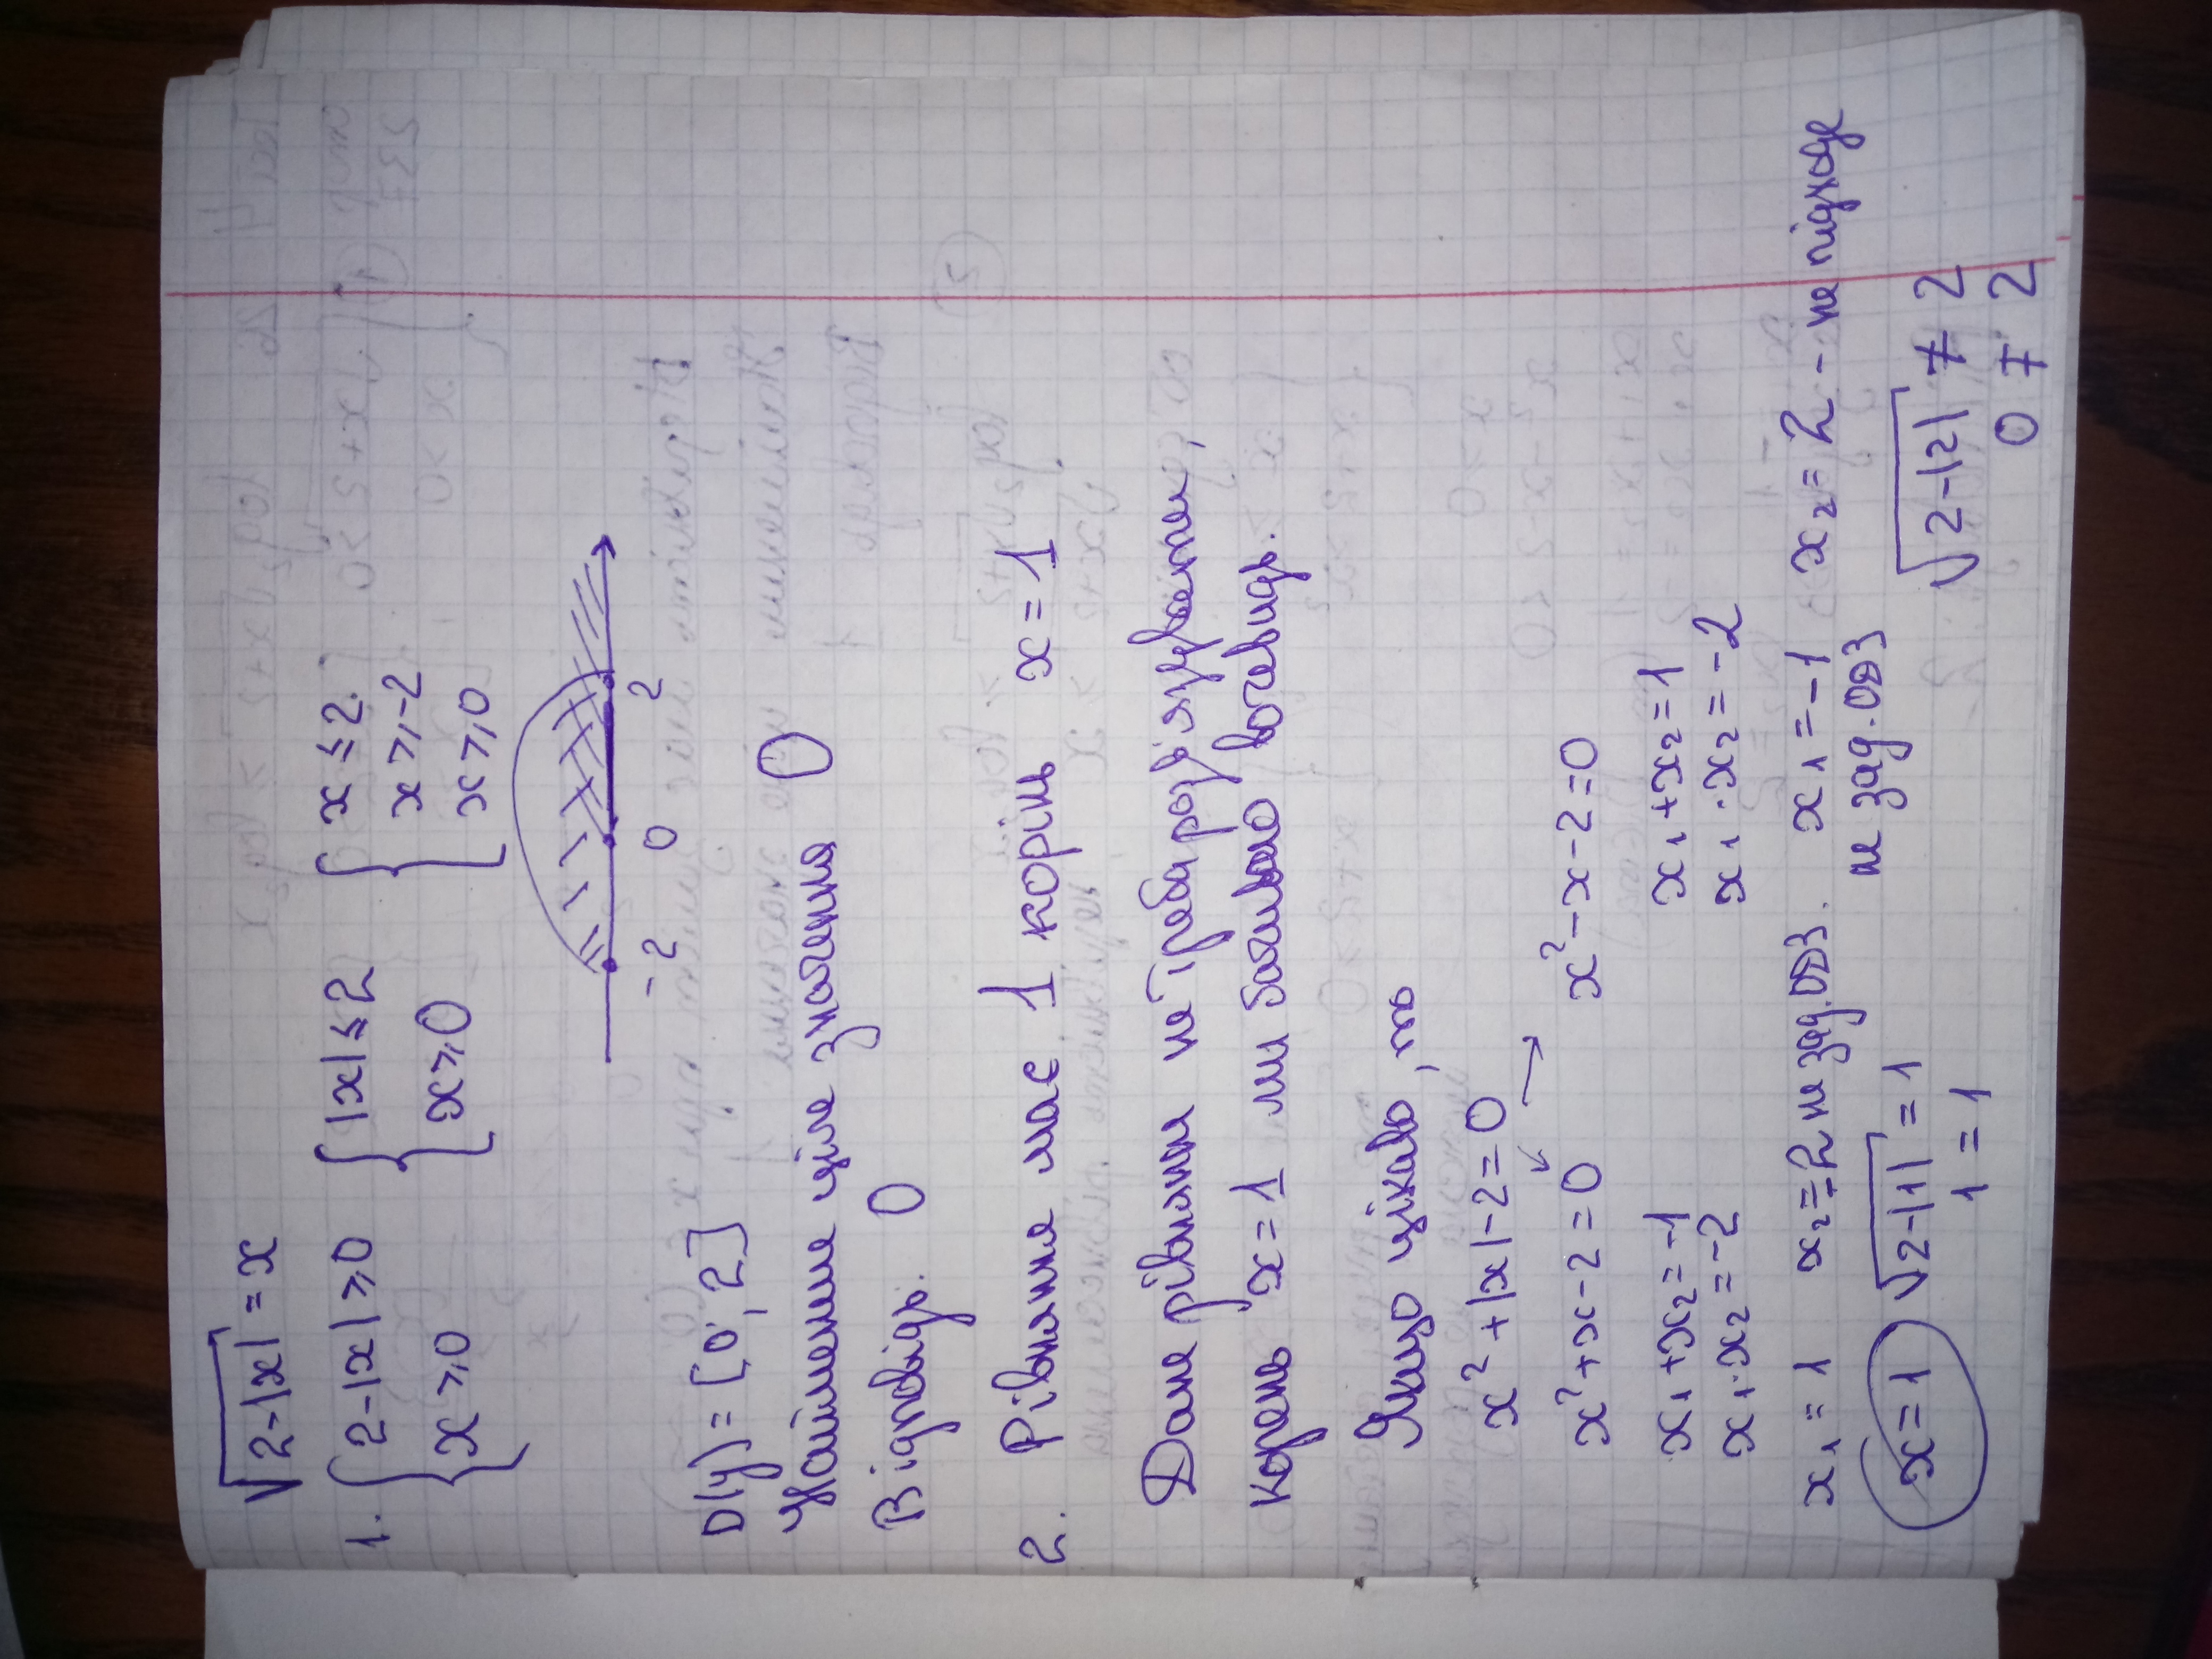 √2-|x| = x
1. { 2-|x| ⩾ 0 { |x| ≤ 2 { x ≤ 2
x ⩾ 0 x ⩾ 0 x ⩾ -2
x ⩾ 0
-2 0 2
D(y) = [0, 2]
Найменше ціле значення 0
Відповідь. 0
2. Рівняння має 1 корінь x = 1
Дане рівняння не треба розв'язувати,
корень x = 1 ми бачимо вочевидь.
Якщо цікаво, то
x² + |x| - 2 = 0
x² + x - 2 = 0 x² - x - 2 = 0
x₁ + x₂ = -1 x₁ + x₂ = 1
x₁ · x₂ = -2 x₁ · x₂ = -2
x₁ = 1 x₂ = -2 не зад. ОДЗ. x₁ = -1 x₂ = 2 - не підходе
не зад. ОДЗ
x = 1 √2-|1| = 1 √2-|2| ≠ 2
1 = 1 0 ≠ 2